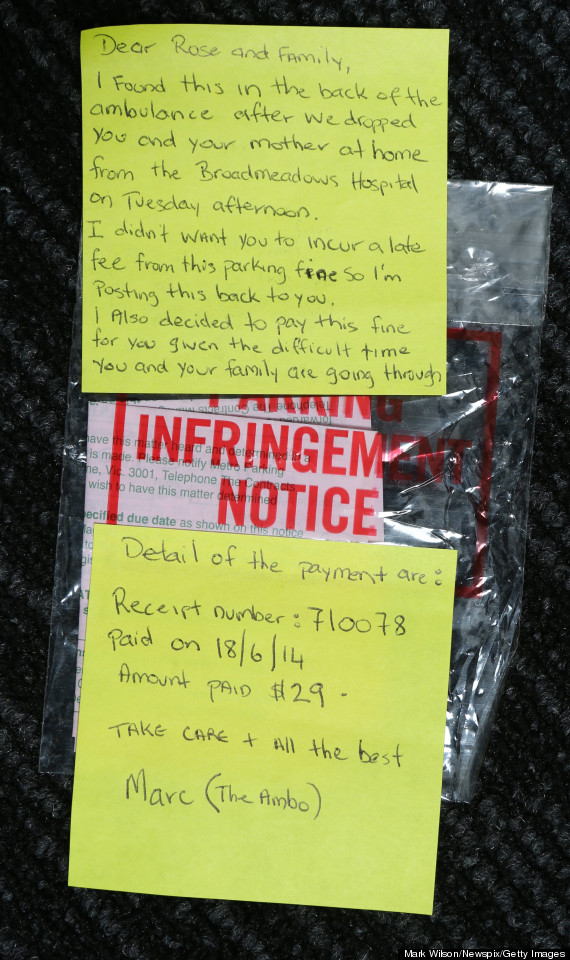 Dear Rose and Family,
I Found this in the back of the
ambulance after we dropped
you and your mother at home
from the Broadmeadows Hospital
on Tuesday afternoon.
I didn't want you to incur a late
fee from this parking fine so I'm
Posting this back to you.
I Also decided to pay this fine
for you given the difficult time
you and your family are going through
PARKING
INFRINGEMENT
NOTICE
have this matter heard and determined
is made. Please notify Metro Parking
ne, Vic. 3001, Telephone The Contracts
wish to have this matter determined
ecified due date as shown on this notice
Detail of the payment are:
Receipt number: 710078
Paid on 18/6/14
Amount PAID $29 -
TAKE CARE + All the best
Marc (The Ambo)
Mark Wilson/Newspix/Getty Images